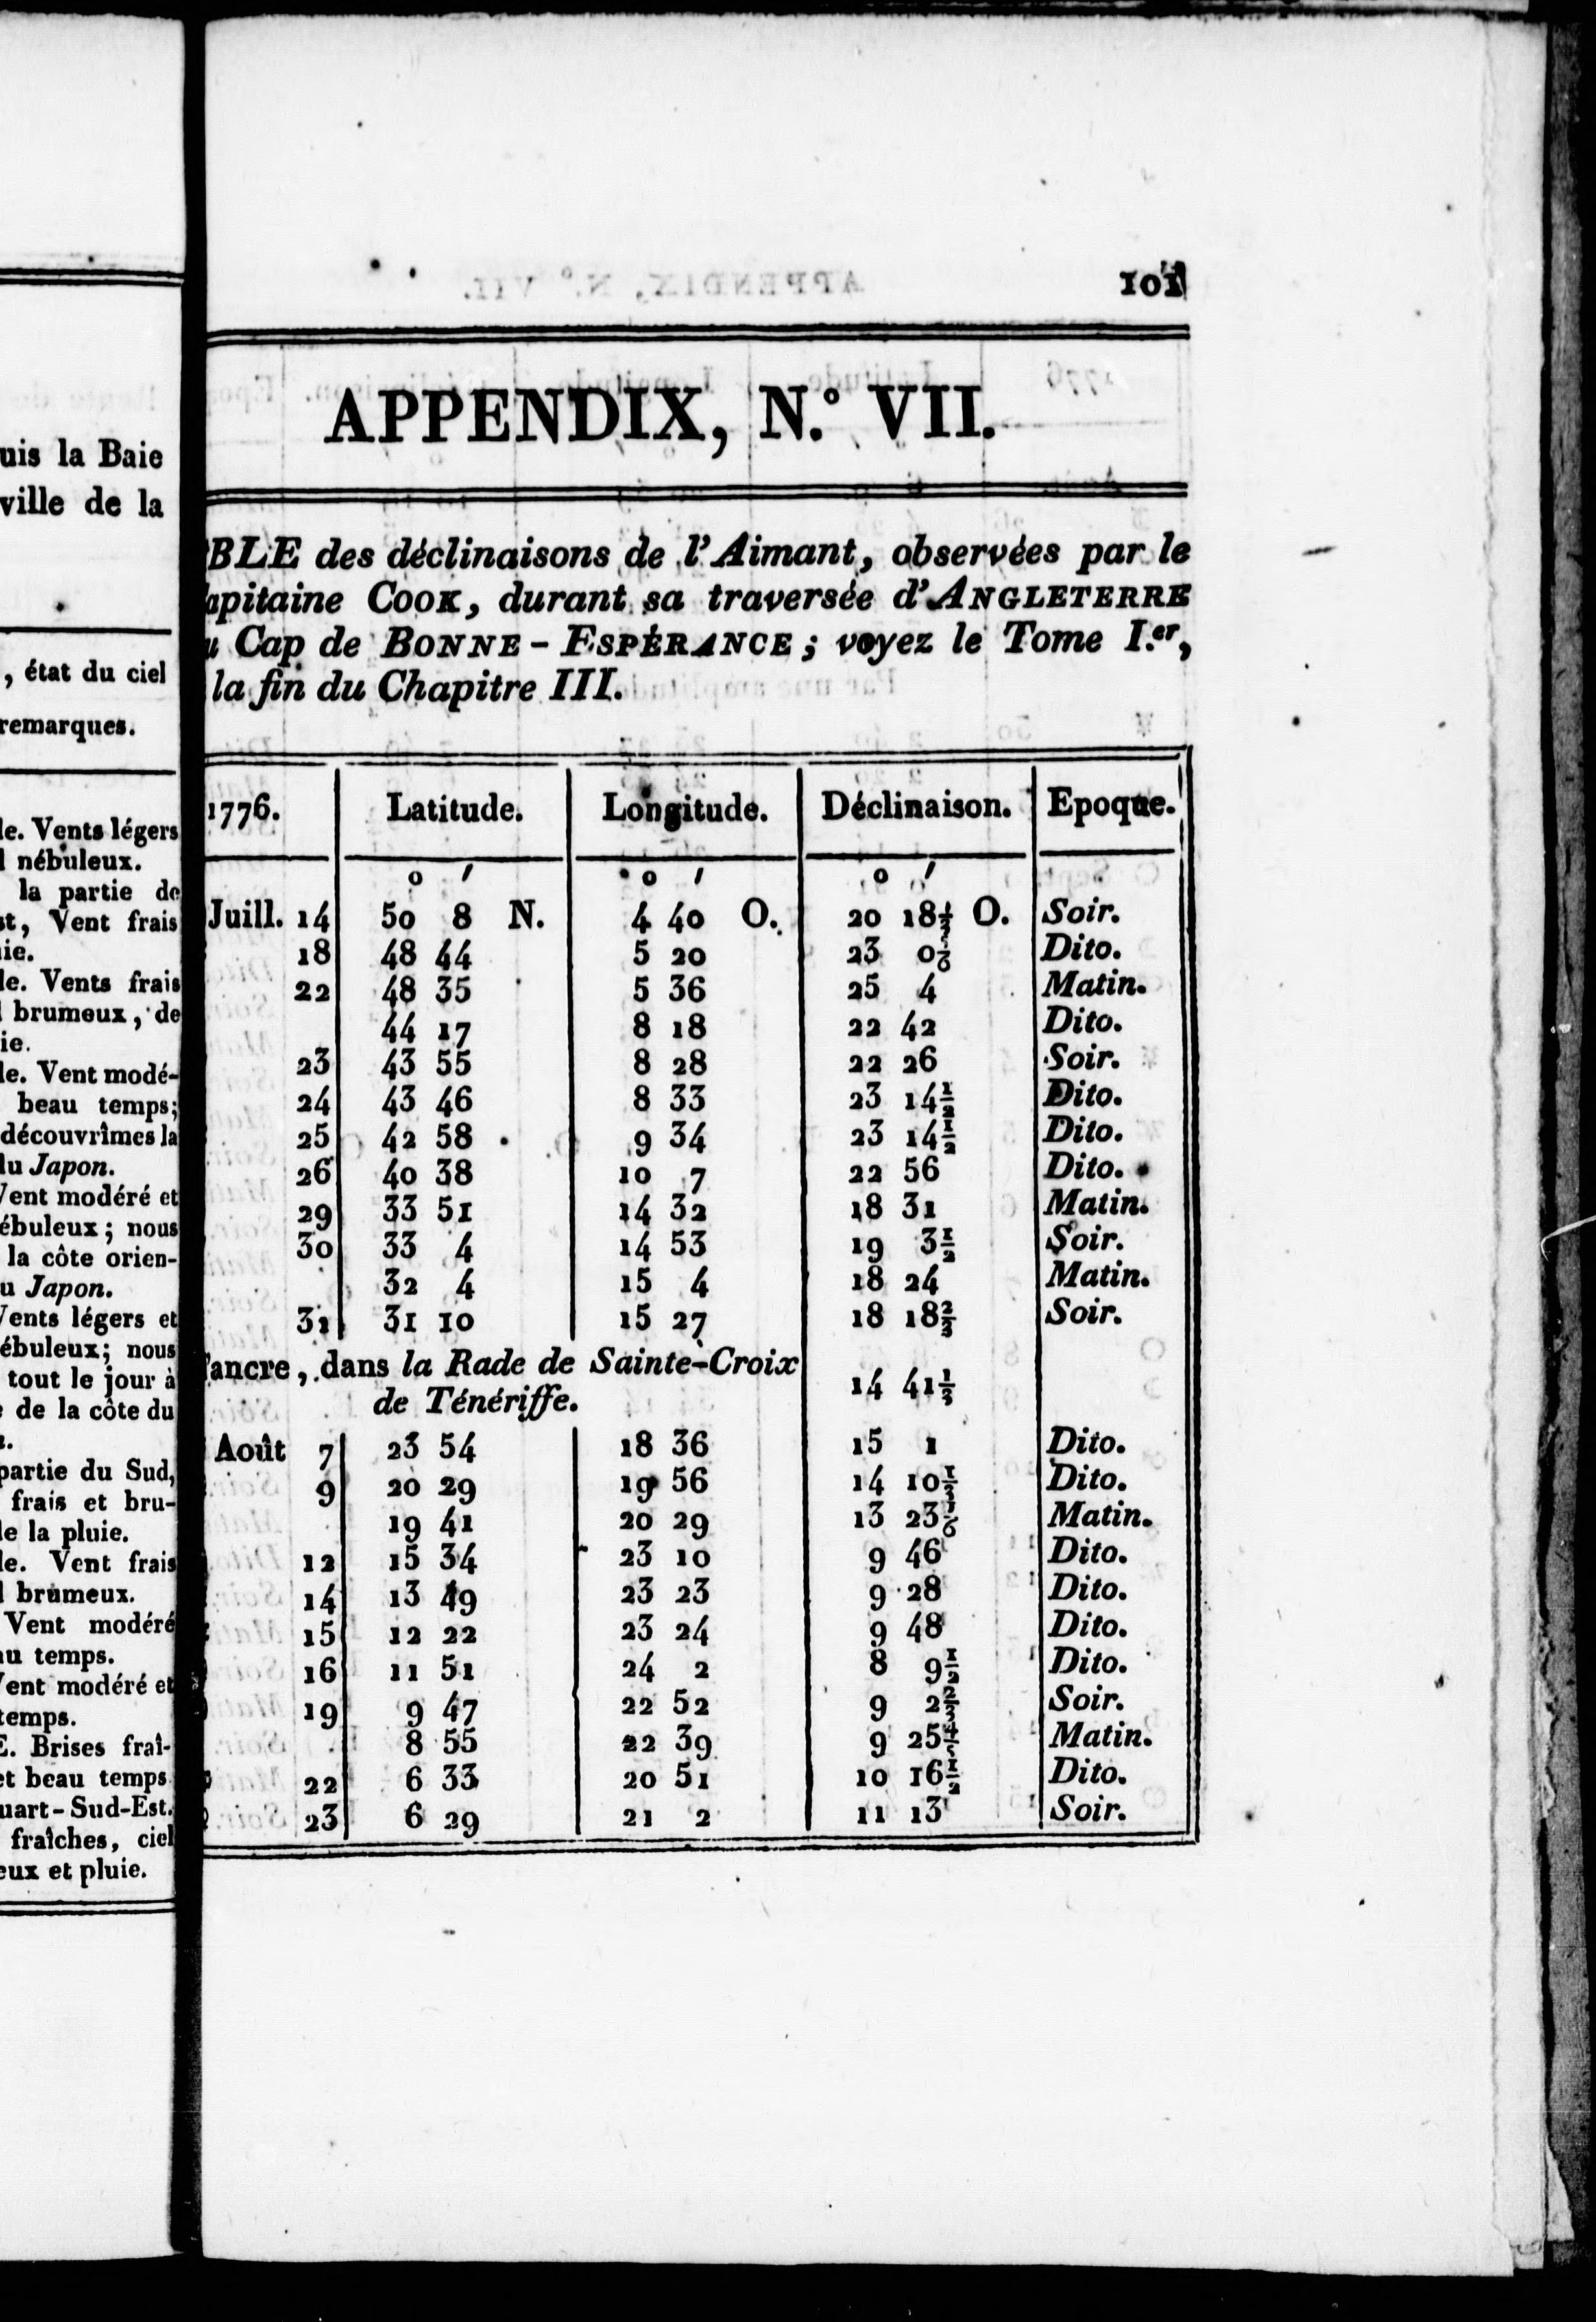 uis la Baie
ville de la
, état du ciel
remarques.
le. Vents légers
l nébuleux.
la partie de
st, Vent frais
uie.
le. Vents frais
l brumeux, de
ie.
le. Vent modé-
beau temps;
découvrîmes la
du Japon.
Vent modéré et
ébuleux; nous
la côte orien-
u Japon.
Vents légers et
ébuleux; nous
tout le jour à
e de la côte du
partie du Sud,
frais et bru-
de la pluie.
le. Vent frais
l brumeux.
Vent modéré
au temps.
Vent modéré et
temps.
E. Brises fraî-
et beau temps
uart-Sud-Est.
fraîches, ciel
eux et pluie.
101
APPENDIX, N.° VII.
BLE des déclinaisons de l'Aimant, observées par le
apitaine COOK, durant sa traversée d'ANGLETERRE
u Cap de BONNE-ESPÉRANCE; voyez le Tome I.er,
la fin du Chapitre III.
1776. Latitude. Longitude. Déclinaison. Epoque.
o ′ o ′ o ′
Juill. 14 50 8 N. 4 40 O. 20 18½ O. Soir.
18 48 44 5 20 23 0⅙ Dito.
22 48 35 5 36 25 4 Matin.
44 17 8 18 22 42 Dito.
23 43 55 8 28 22 26 Soir.
24 43 46 8 33 23 14½ Dito.
25 42 58 9 34 23 14½ Dito.
26 40 38 10 7 22 56 Dito.
29 33 51 14 32 18 31 Matin.
30 33 4 14 53 19 3½ Soir.
32 4 15 4 18 24 Matin.
31 31 10 15 27 18 18⅔ Soir.
l'ancre, dans la Rade de Sainte-Croix
de Ténériffe. 14 41⅓
Août 7 23 54 18 36 15 1 Dito.
9 20 29 19 56 14 10⅓ Dito.
19 41 20 29 13 23⅙ Matin.
12 15 34 23 10 9 46 Dito.
14 13 49 23 23 9 28 Dito.
15 12 22 23 24 9 48 Dito.
16 11 51 24 2 8 9½ Dito.
19 9 47 22 52 9 2⅔ Soir.
8 55 22 39 9 25⅘ Matin.
22 6 33 20 51 10 16½ Dito.
23 6 29 21 2 11 13 Soir.